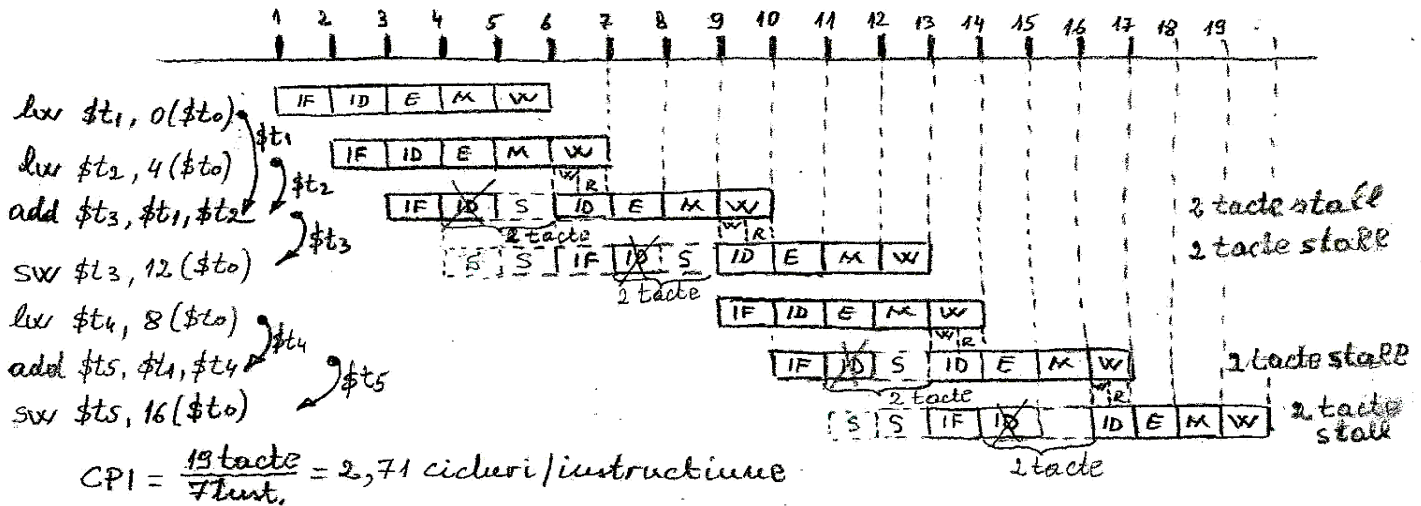 1 2 3 4 5 6 7 8 9 10 11 12 13 14 15 16 17 18 19
lw $t1, 0($t0) IF ID E M W
$t1
lw $t2, 4($t0) IF ID E M W
$t2 W R
add $t3, $t1, $t2 IF ID S ID E M W 2 tacte stall
$t3 2 tacte W R
sw $t3, 12($t0) S S IF ID S ID E M W 2 tacte stall
2 tacte
lw $t4, 8($t0) IF ID E M W
$t4 W R
add $t5, $t1, $t4 IF ID S ID E M W 2 tacte stall
$t5 2 tacte W R
sw $t5, 16($t0) S S IF ID ID E M W 2 tacte stall
2 tacte
CPI = 19 tacte / 7 Inst. = 2,71 cicluri/instructiune